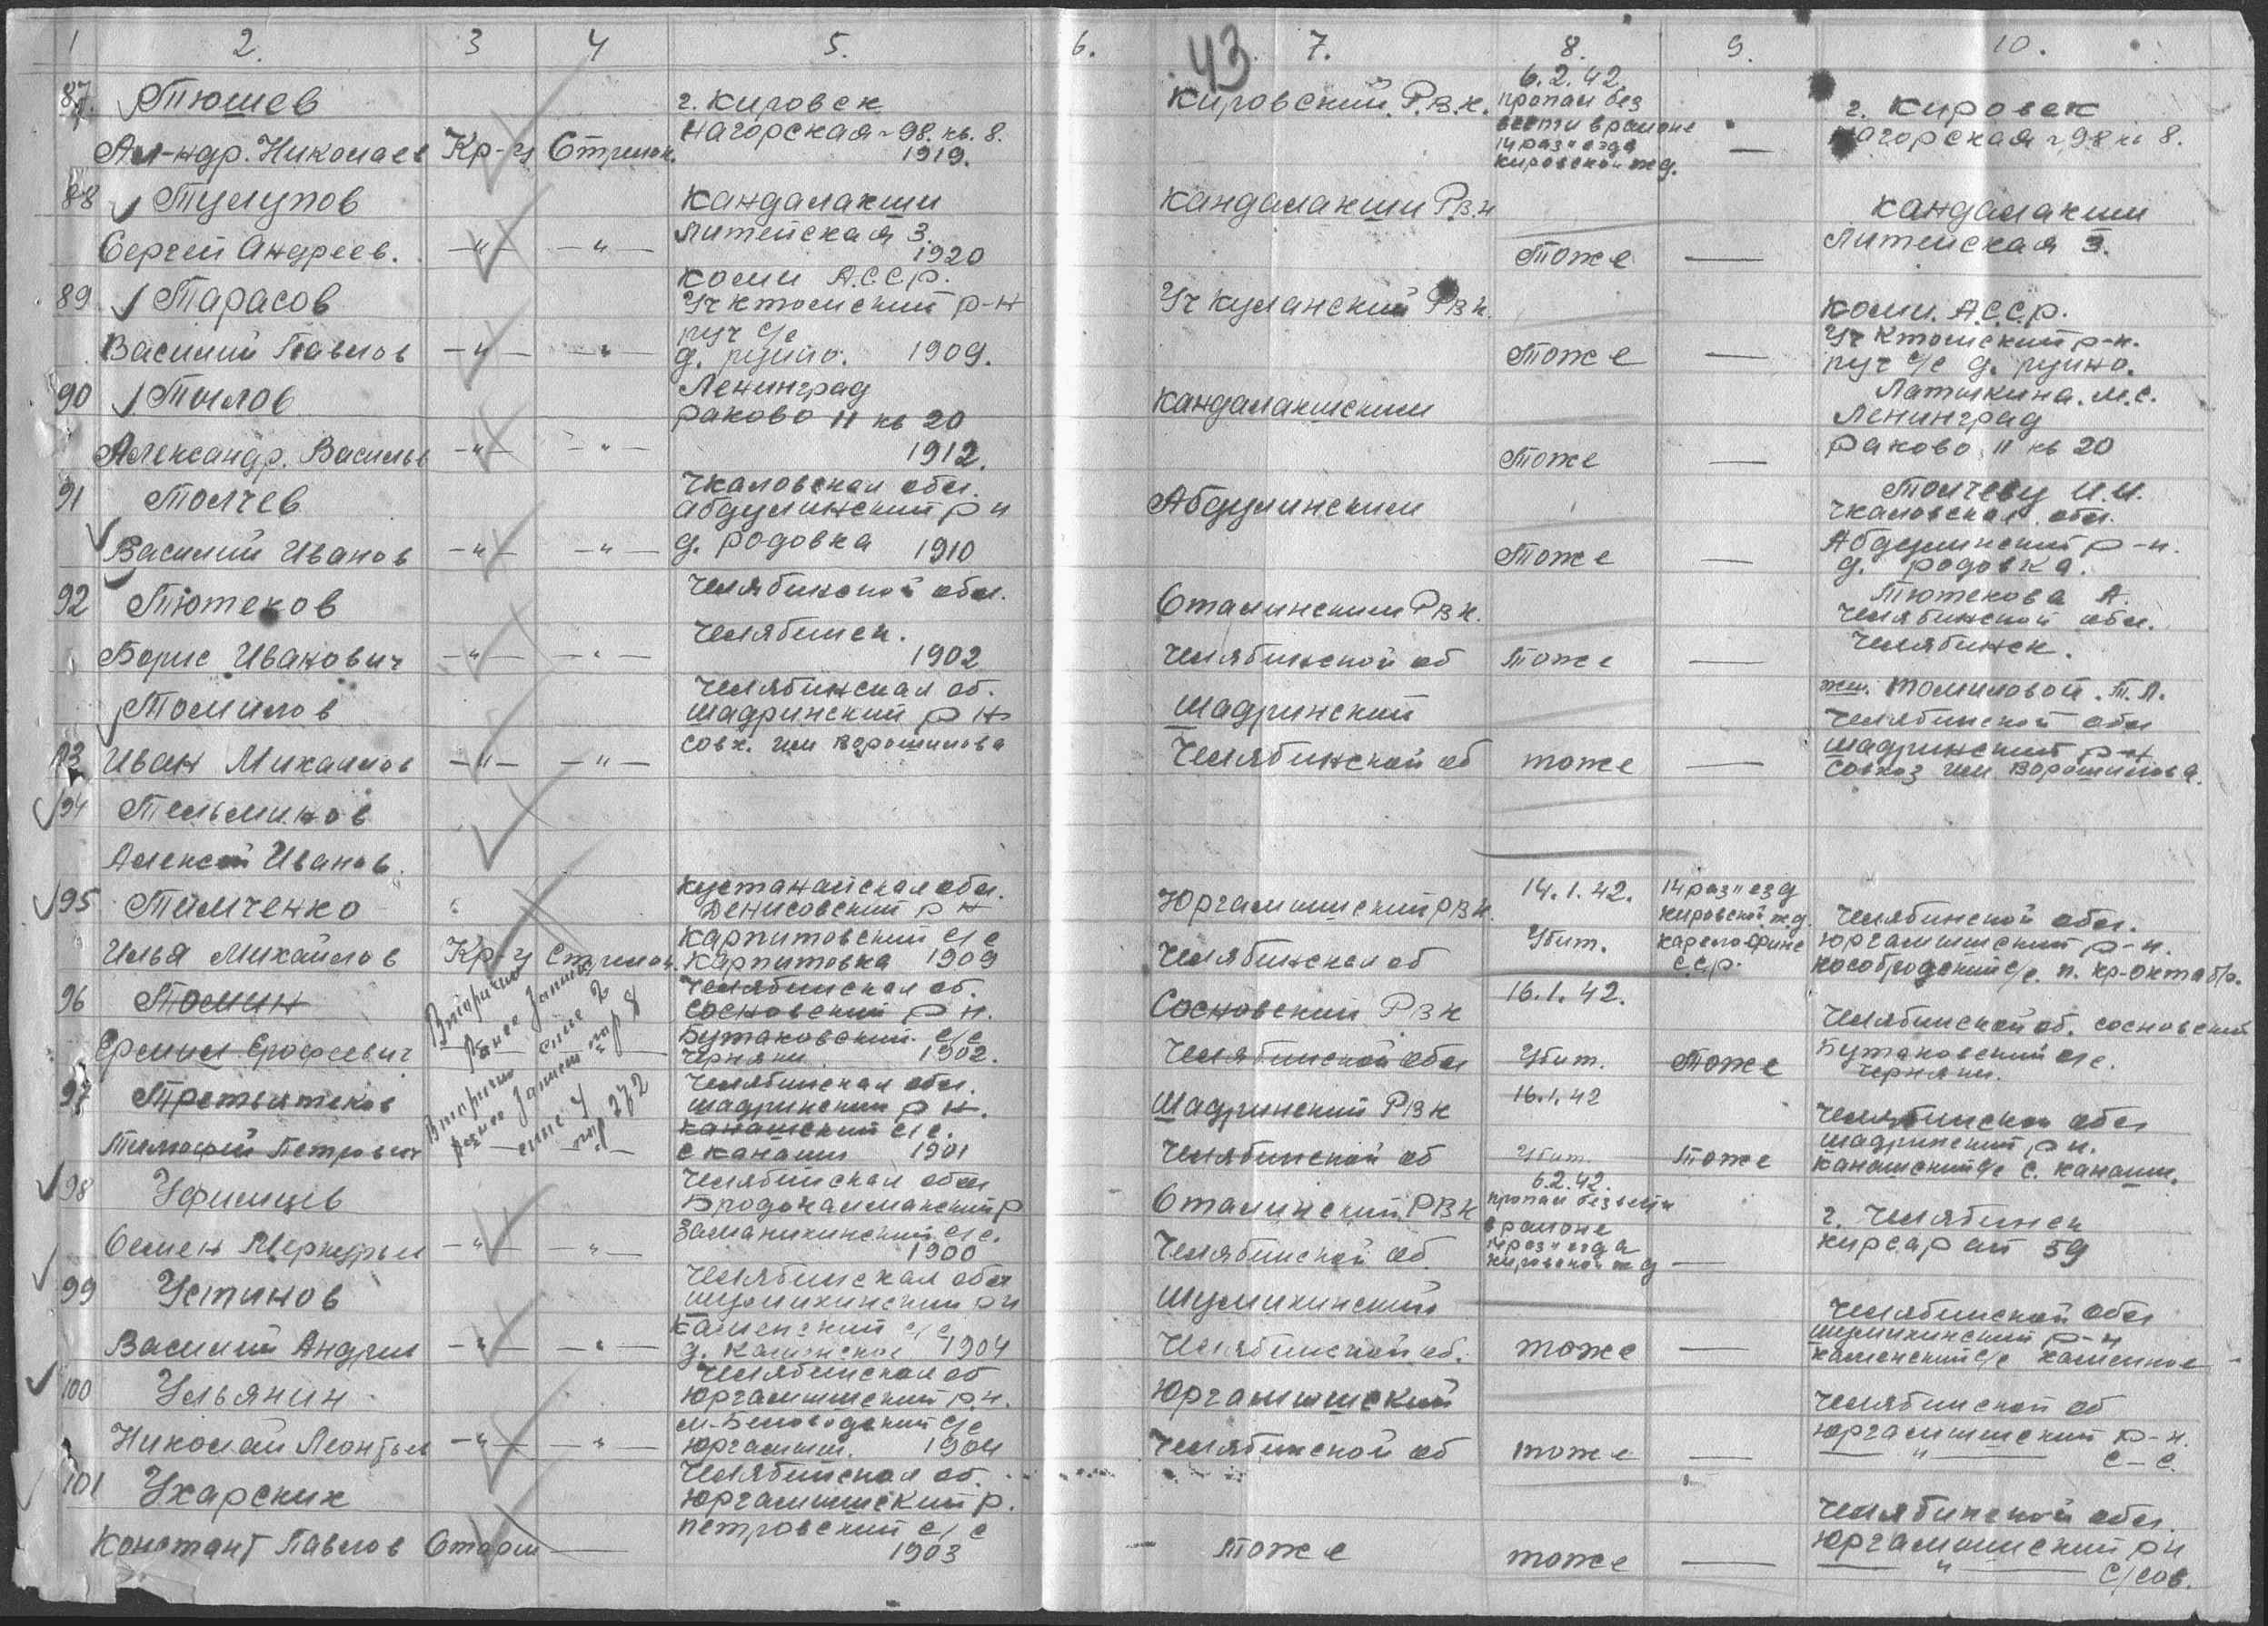 1 2. 3 4 5. 6. 43 7. 8. 9. 10.
87. Тюшев
Ал-ндр. Николаев Кр-ц Стрелок.
г. Кировск
Нагорская 98. кв. 8.
1919.
Кировский Р.В.К.
6.2.42.
пропал без
вести в районе
14 раз"езда
Кировской ж.д.
—
г. Кировск
Нагорская 98 кв 8.
88 Тулупов
Сергей Андреев. —"— —"—
Кандалакши
Литейская 3.
1920
Кандалакши РВК
Тоже —
Кандалакши
Литейская 3.
89 Тарасов
Василий Павлов —"— —"—
Коми А.С.С.Р.
Уч Ктомский р-н
руч с/с
1909.
Уч Куланский РВК.
Тоже —
Коми. А.С.С.Р.
Уч Ктомский р-н.
руч с/с
90 Тылов
Александр. Василье —"— —"—
Ленинград
Раково 11 кв 20
1912.
Кандалакшским
Тоже —
Латыкина. М.С.
Ленинград
Раково 11 кв 20
91 Толчев
Василий Иванов —"— —"—
Чкаловская обл.
Абдулинский р н
д. Родовка 1910
Абдулинским
Тоже —
Толчеву И.И.
Чкаловская обл.
Абдулинский р-н.
д. Родовка.
92 Тютеков
Борис Иванович —"— —"—
Челябинской обл.
Челябинск.
1902
Сталинским РВК.
Челябинской об Тоже —
Тютекова А.
Челябинской обл.
Челябинск.
Томилов
93 Иван Михайлов —"— —"—
Челябинская об.
Шадринский р н
Совх. им Ворошилова
Шадринский
Челябинской об тоже —
жен. Томиловой. Т.Л.
Челябинской обл
Шадринский р-н
Совхоз им Ворошилова.
94 Тельминов
Алексей Иванов.
95 Тимченко
Илья Михайлов Кр-ц Стрелок.
Кустанайская обл.
Денисовский р н
Карпитовский с/с
Карпитовка 1909
Юргамышский РВК.
Челябинская об
14.1.42.
Убит.
14 раз"езд
Кировской ж.д.
Карелофинс
ССР.
Челябинской обл.
Юргамышский р-н.
Кособродский с/с. п. Кр-октябр.
96 Томин
Ермил Ерофеевич
Вторичный
Ранее Записан
стр 8
Челябинская об.
Сосновский р н.
Бутаковский с/с
Черняки 1902.
Сосновский РВК
Челябинской обл
16.1.42.
Убит. Тоже
Челябинской об. Сосновский
Бутаковский с/с.
Черняки.
97 Третьятеков
Тимофей Петрович
Вторично
ранее Записан
стр 272
Челябинская обл.
Шадринский р н.
Канашский с/с.
с Канаши 1901
Шадринский РВК
Челябинской об
16.1.42
Убит Тоже
Челябинской обл
Шадринский р н.
Канашский с/с с. Канаши.
98 Уфимцев
Семен Меркурьи —"— —"—
Челябинская обл
Бродокалмакский р
Заманихинский с/с.
1900
Сталинский РВК
Челябинской об.
6.2.42.
пропал без вести
в районе
14 раз"езда
Кировской ж д —
г. Челябинск
59
99 Устинов
Василий Андрил —"— —"—
Челябинская обл
Шумихинский р н
Каменский с/с
д. Каменское 1904
Шумихинский
Челябинской об. тоже —
Челябинской обл
Шумихинский р-н
Каменский с/с Каменное
100 Ульянин
Николай Леонтьи —"— —"—
Челябинская об
Юргамышский р.н.
М-Беловодский с/с
Юргамыш. 1904
Юргамышский
Челябинской об тоже —
Челябинской об
Юргамышский р-н.
—"— с-с.
101 Ухарских
Констант Павлов Старш —
Челябинская об.
Юргамышский р.
Петровский с/с
1903
— Тоже тоже —
Челябинской обл.
Юргамышский р н
—"— с/сов.